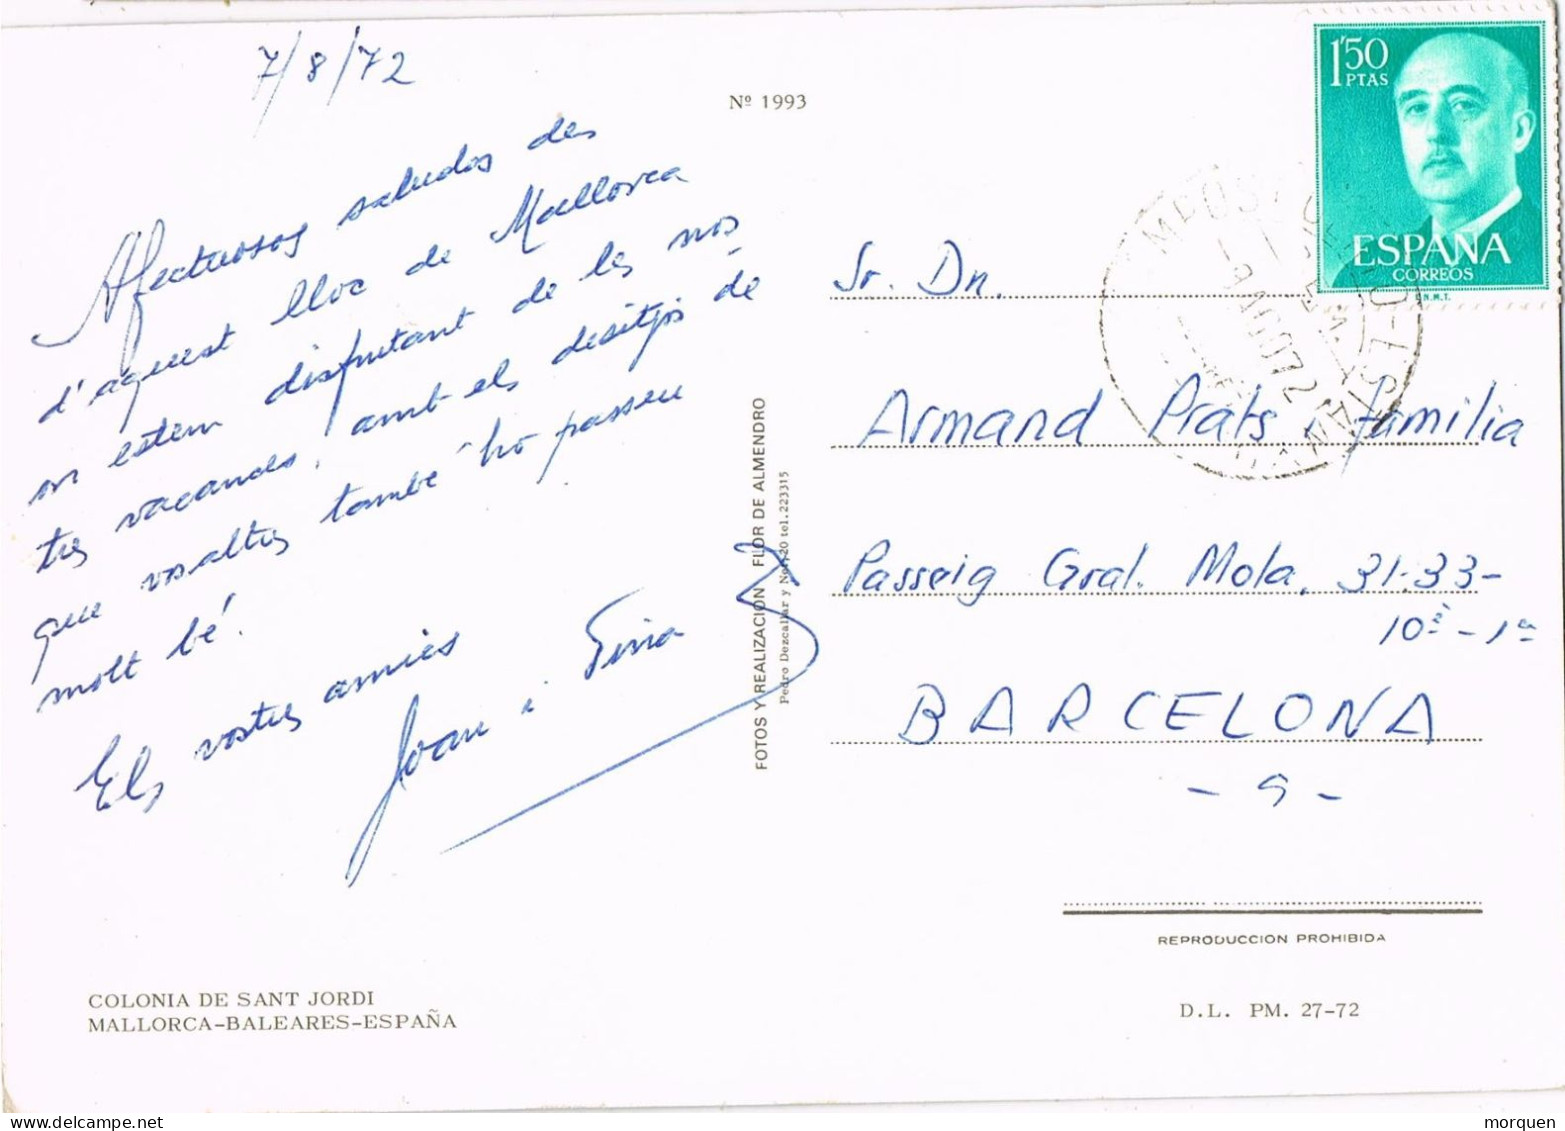 7/8/72
Nº 1993
Afectuosos saludos des
d'aquest lloc de Mallorca
on estem disfrutant de les nos-
tres vacances, amb els desitjos de
que vosaltres també ho passeu
molt bé.
Els vostres amics
Joan i Tina
COLONIA DE SANT JORDI
MALLORCA-BALEARES-ESPAÑA
FOTOS Y REALIZACION FLOR DE ALMENDRO
Pedro Dezcallar y Net, 20 tel. 223315
1'50
PTAS
ESPAÑA
CORREOS
F.N.M.T.
9 AGO 72
Sr. Dn.
Armand Prats i família
Passeig Gral. Mola, 31-33-
10è - 1ª
BARCELONA
- 9 -
REPRODUCCION PROHIBIDA
D.L. PM. 27-72
morquen